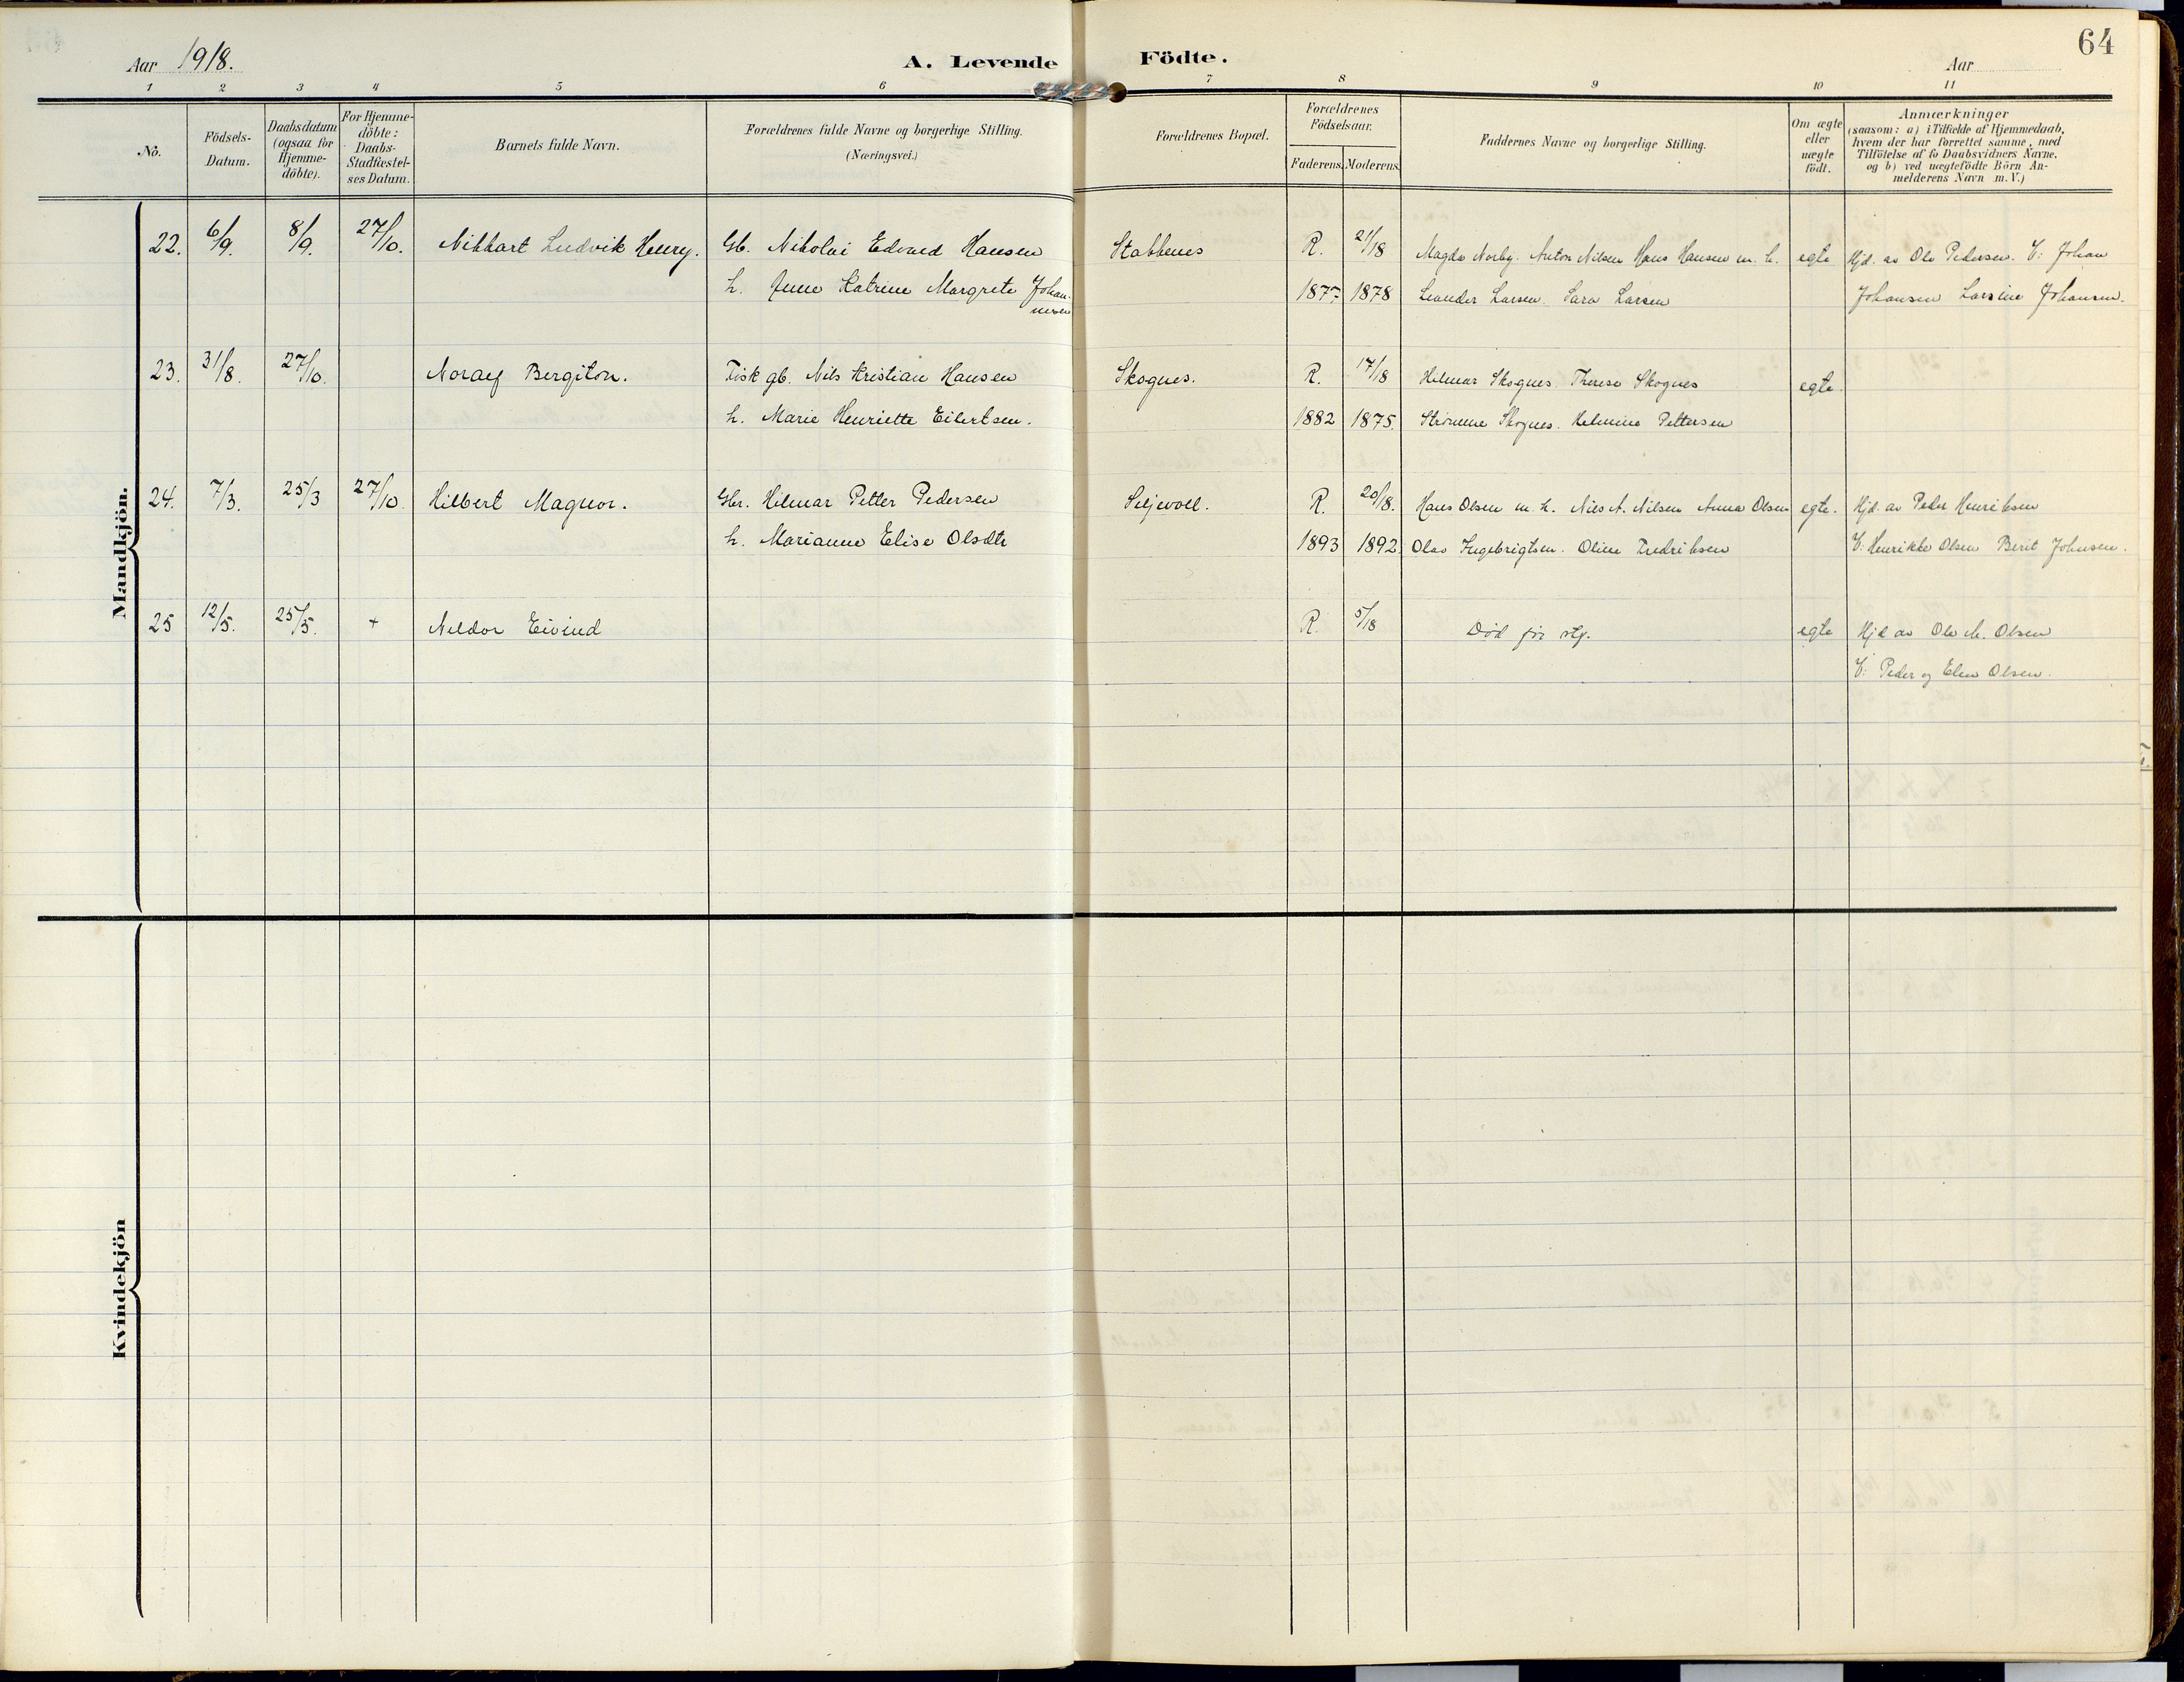 64
Aar 1918.
A. Levende Födte.
Aar
1 2 3 4 5 6 7 8 9 10 11
No.
Födsels-
Datum.
Daabsdatum
(ogsaa for
Hjemme-
döbte).
For Hjemme-
döbte:
Daabs-
Stadfæstel-
ses Datum.
Barnets fulde Navn.
Forældrenes fulde Navne og borgerlige Stilling.
(Næringsvei.)
Forældrenes Bopæl.
Forældrenes
Födselsaar.
Faderens. Moderens.
Faddernes Navne og borgerlige Stilling.
Om ægte
eller
uægte
födt.
Anmærkninger
(saasom: a) i Tilfælde af Hjemmedaab,
hvem der har forrettet samme, med
Tilföielse af to Daabsvidners Navne,
og b) ved uægtefödte Börn An-
melderens Navn m. V.)
Mandkjön.
22. 6/9. 8/9. 27/10. Nikhart Ludvik Henry. Gb. Nikolai Edvard Hansen Stabbenes R. 21/18 Magda Norby. Anton Nilsen Hans Hansen m. h. egte Hjd. av Ole Pedersen. V: Johan
h. Anne Katrine Margrete Johan- 1877 1878 Leander Larsen. Sara Larsen Johansen Larsine Johansen.
nesen
23. 31/8. 27/10. Noralf Bergiton. Fisk gb. Nils Kristian Hansen Skognes. R. 17/18 Hilmar Skognes. Therese Skognes egte.
h. Marie Henriette Eibertsen. 1882 1875. Strømme Skognes. Helmine Pettersen
24. 7/3. 25/3 27/10. Hilbert Magnor. Gbr. Hilmar Petter Pedersen Seljevoll. R. 20/18. Hans Olsen m. h. Nils A. Nilsen Anna Olsen egte. Hjd. av Peder Henriksen
h. Marianne Elise Olsdtr 1893 1892. Olav Ingebrigtsen. Oline Fredriksen V: Henrikke Olsen Berit Johnsen.
25 12/5. 25/5. + Neldor Eivind R. 5/18 Död för stf. egte Hjd av Ole M. Olsen
V: Peder og Elen Olsen.
Kvindekjön